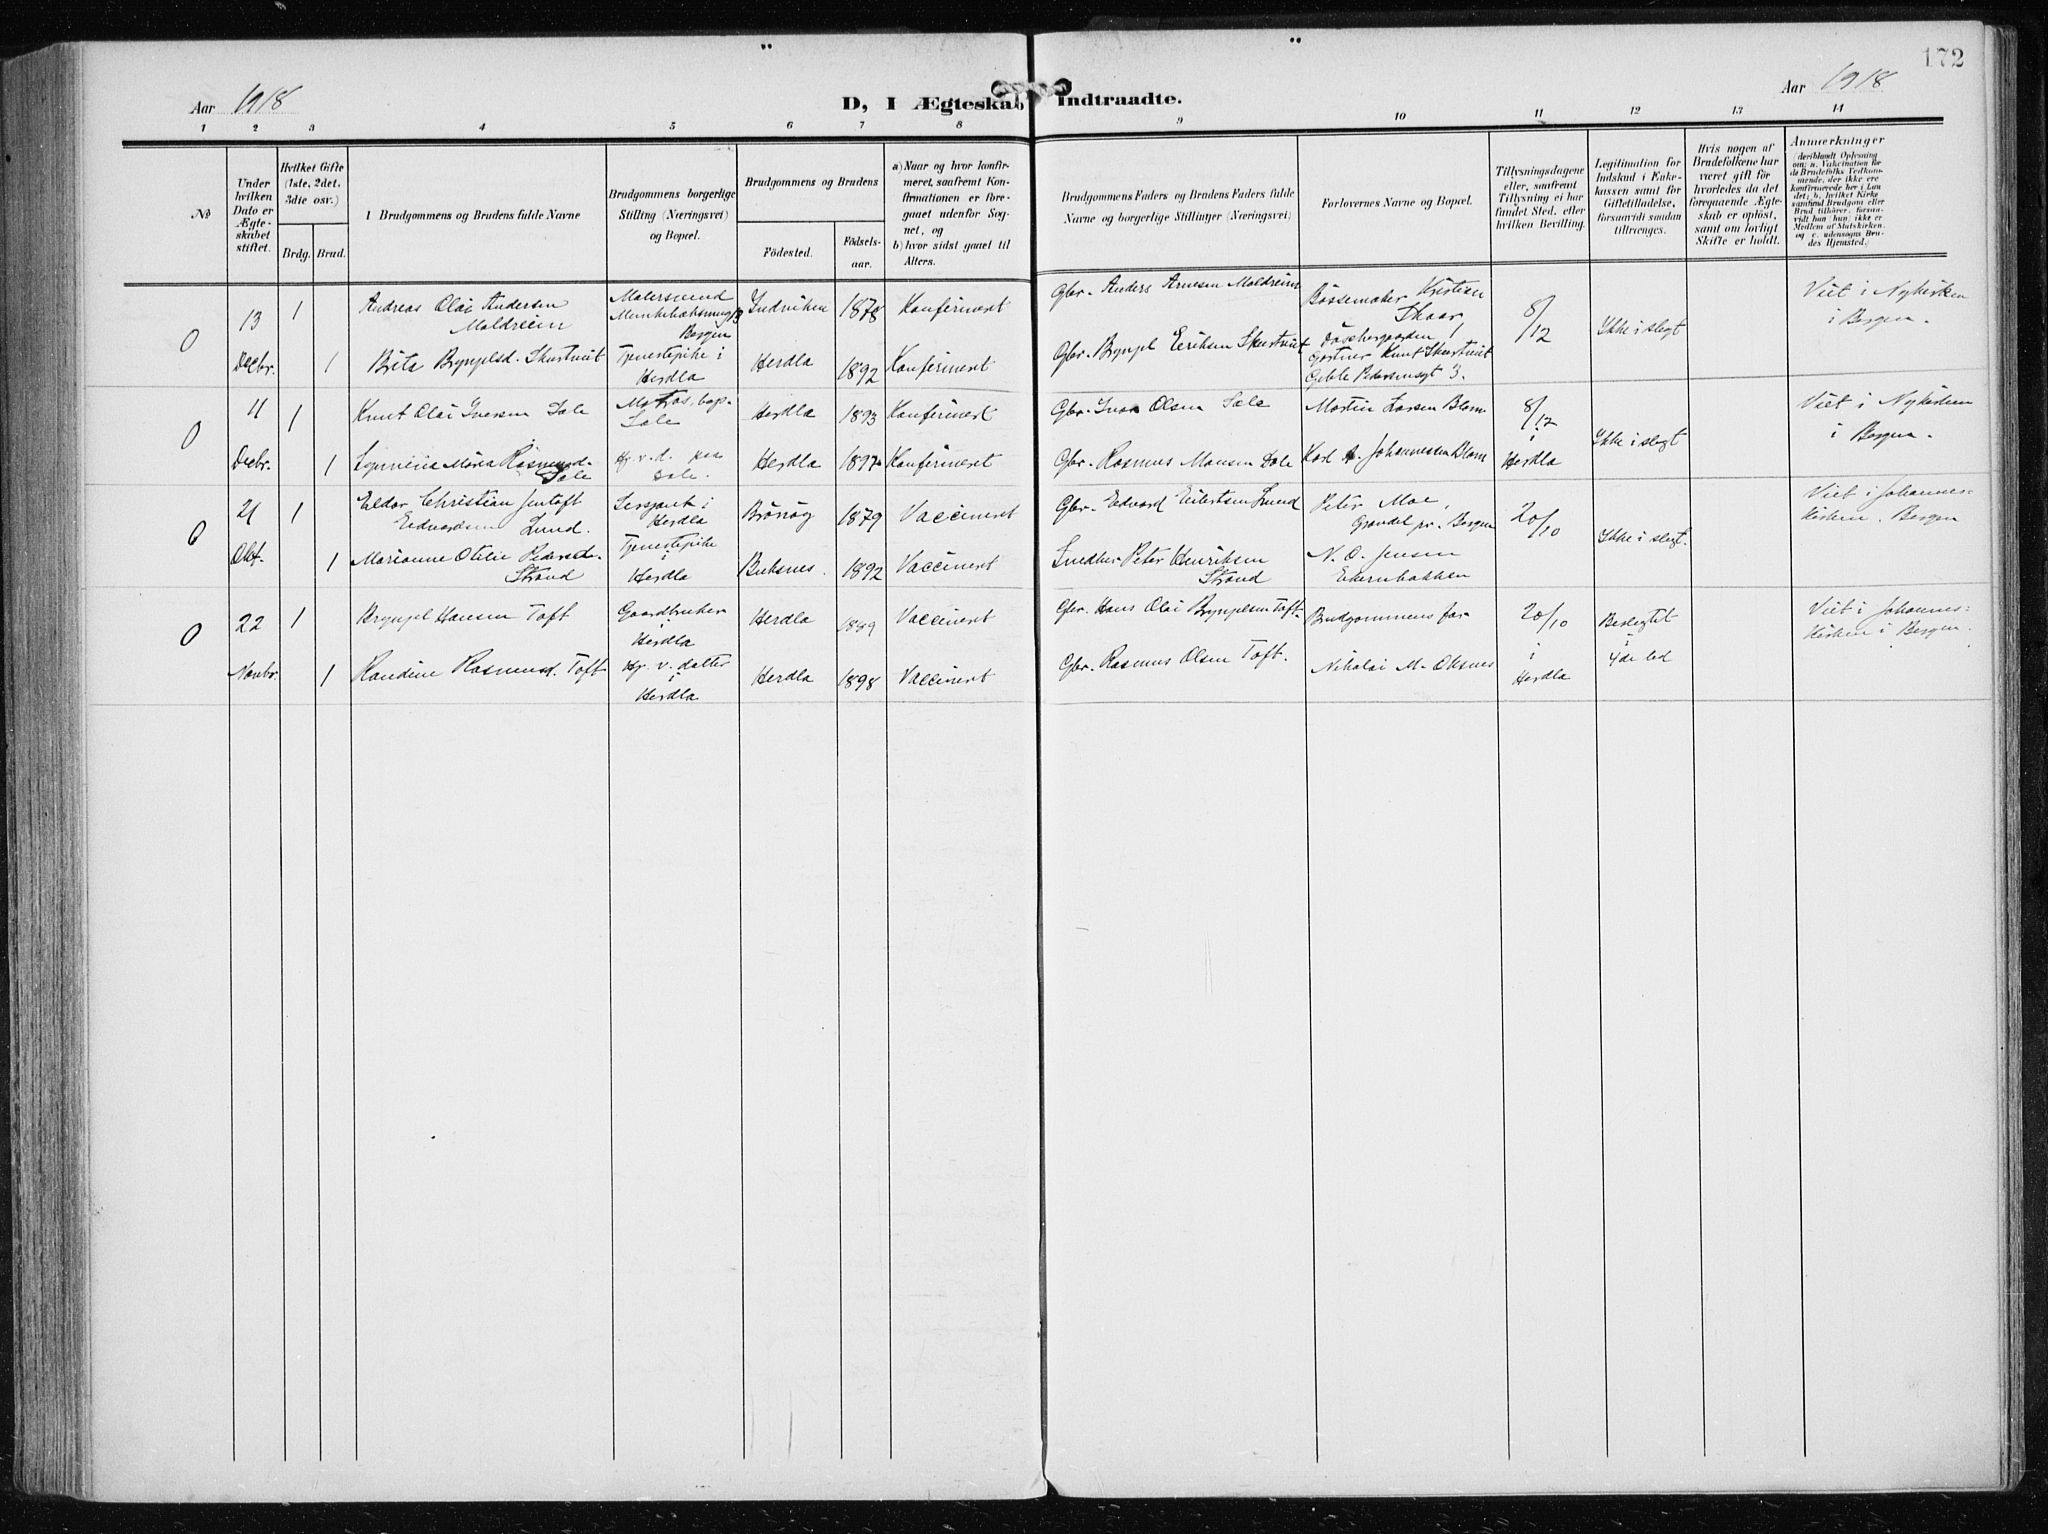 172
Aar 1918
D, I Ægteskab Indtraadte.
Aar 1918
1 2 3 4 5 6 7 8 9 10 11 12 13 14
No
Under hvilken Dato er Ægteskabet stiftet.
Hvilket Gifte (1ste, 2det, 3die osv.)
Brdg. Brud.
Brudgommens og Brudens fulde Navne
Brudgommens borgerlige Stilling (Næringsvei) og Bopæl.
Brudgommens og Brudens
Fødested.
Fødselsaar.
a) Naar og hvor konfirmeret, saafremt Konfirmationen er foregaaet udenfor Sognet, og
b) hvor sidst gaaet til Alters.
Brudgommens Faders og Brudens Faders fulde Navne og borgerlige Stillinger (Næringsvei)
Forlovernes Navne og Bopæl.
Tillysningsdagene eller, saafremt Tillysning ei har fundet Sted, efter hvilken Bevilling.
Legitimation for Indskud i Enkekassen samt for Giftetilladelse, forsaavidt saadan tiltrænges.
Hvis nogen af Brudefolkene har været gift før hvorledes da det foregaaende Ægteskab er opløst, samt om lovligt Skifte er holdt.
Anmerkninger
(deriblandt Oplysning om: a. Vakcination for de Brudefolks Vedkommende, der ikke ere konfirmerede her i Landet; b. hvilket Kirkesamfund Brudgom eller Brud tilhører, forsaavidt han (hun) ikke er Medlem af Statskirken, og c. udensogns Brudes Hjemsted.)
0
13 Decbr.
1
Andreas Olai Andersen Moldreim
Malersvend
Bergen
Indviken
1878
Konfirmert
Gbr. Anders Arnesen Moldreim
Bøssemaker Kristian Skaar
8/12
Ikke i slegt
Viet i Nykirken i Bergen.
1
Brita Brynjelsd. Skurtveit
Tjenestepike i Herdla
Herdla
1892
Konfirmert
Gbr. Brynjel Eriksen Skurtveit
Gartner Knut Skurtveit
Gjeble Pedersensgt 3.
0
11 Decbr.
1
Knut Olai Iversen Sæle
Matros, bop. Sæle
Herdla
1893
Konfirmert
Gbr. Ivar Olsen Sæle
Martin Larsen Blom
8/12 i Herdla
Ikke i slegt
Viet i Nykirken i Bergen.
1
Maria Rasmusd. Sæle
Hj. v. d. paa Sæle.
Herdla
1897
Konfirmert
Gbr. Rasmus Monsen Sæle
Karl A. Johannessen Blom
0
21 Okt.
1
Eldor Christian Jentoft Edvardsen Lund.
Sersjant i Herdla
Brönög
1879
Vaccinert
Gbr. Edvard Eilertsen Lund
Peter Moe, Grøndal pr. Bergen
20/10
Ikke i slegt.
Viet i Johanneskirken. Bergen
1
Marianne Otilie Pedersd. Strand
Tjenestepike i Herdla
Buksnes.
1892
Vaccinert
Snedker Peter Henriksen Strand
N. O. Jensen
0
22 Novbr.
1
Brynjel Hansen Toft
Gaardbruker i Herdla
Herdla
1889
Vaccinert
Gbr. Hans Olai Brynjelsen Toft.
Brudgommens far
20/10 i Herdla
Beslegtet i 4de led
Viet i Johanneskirken i Bergen.
1
Randine Rasmusd. Toft
Hj. v. datter i Herdla
Herdla
1898
Vaccinert
Gbr. Rasmus Olsen Toft.
Nikolai M. Oksnes